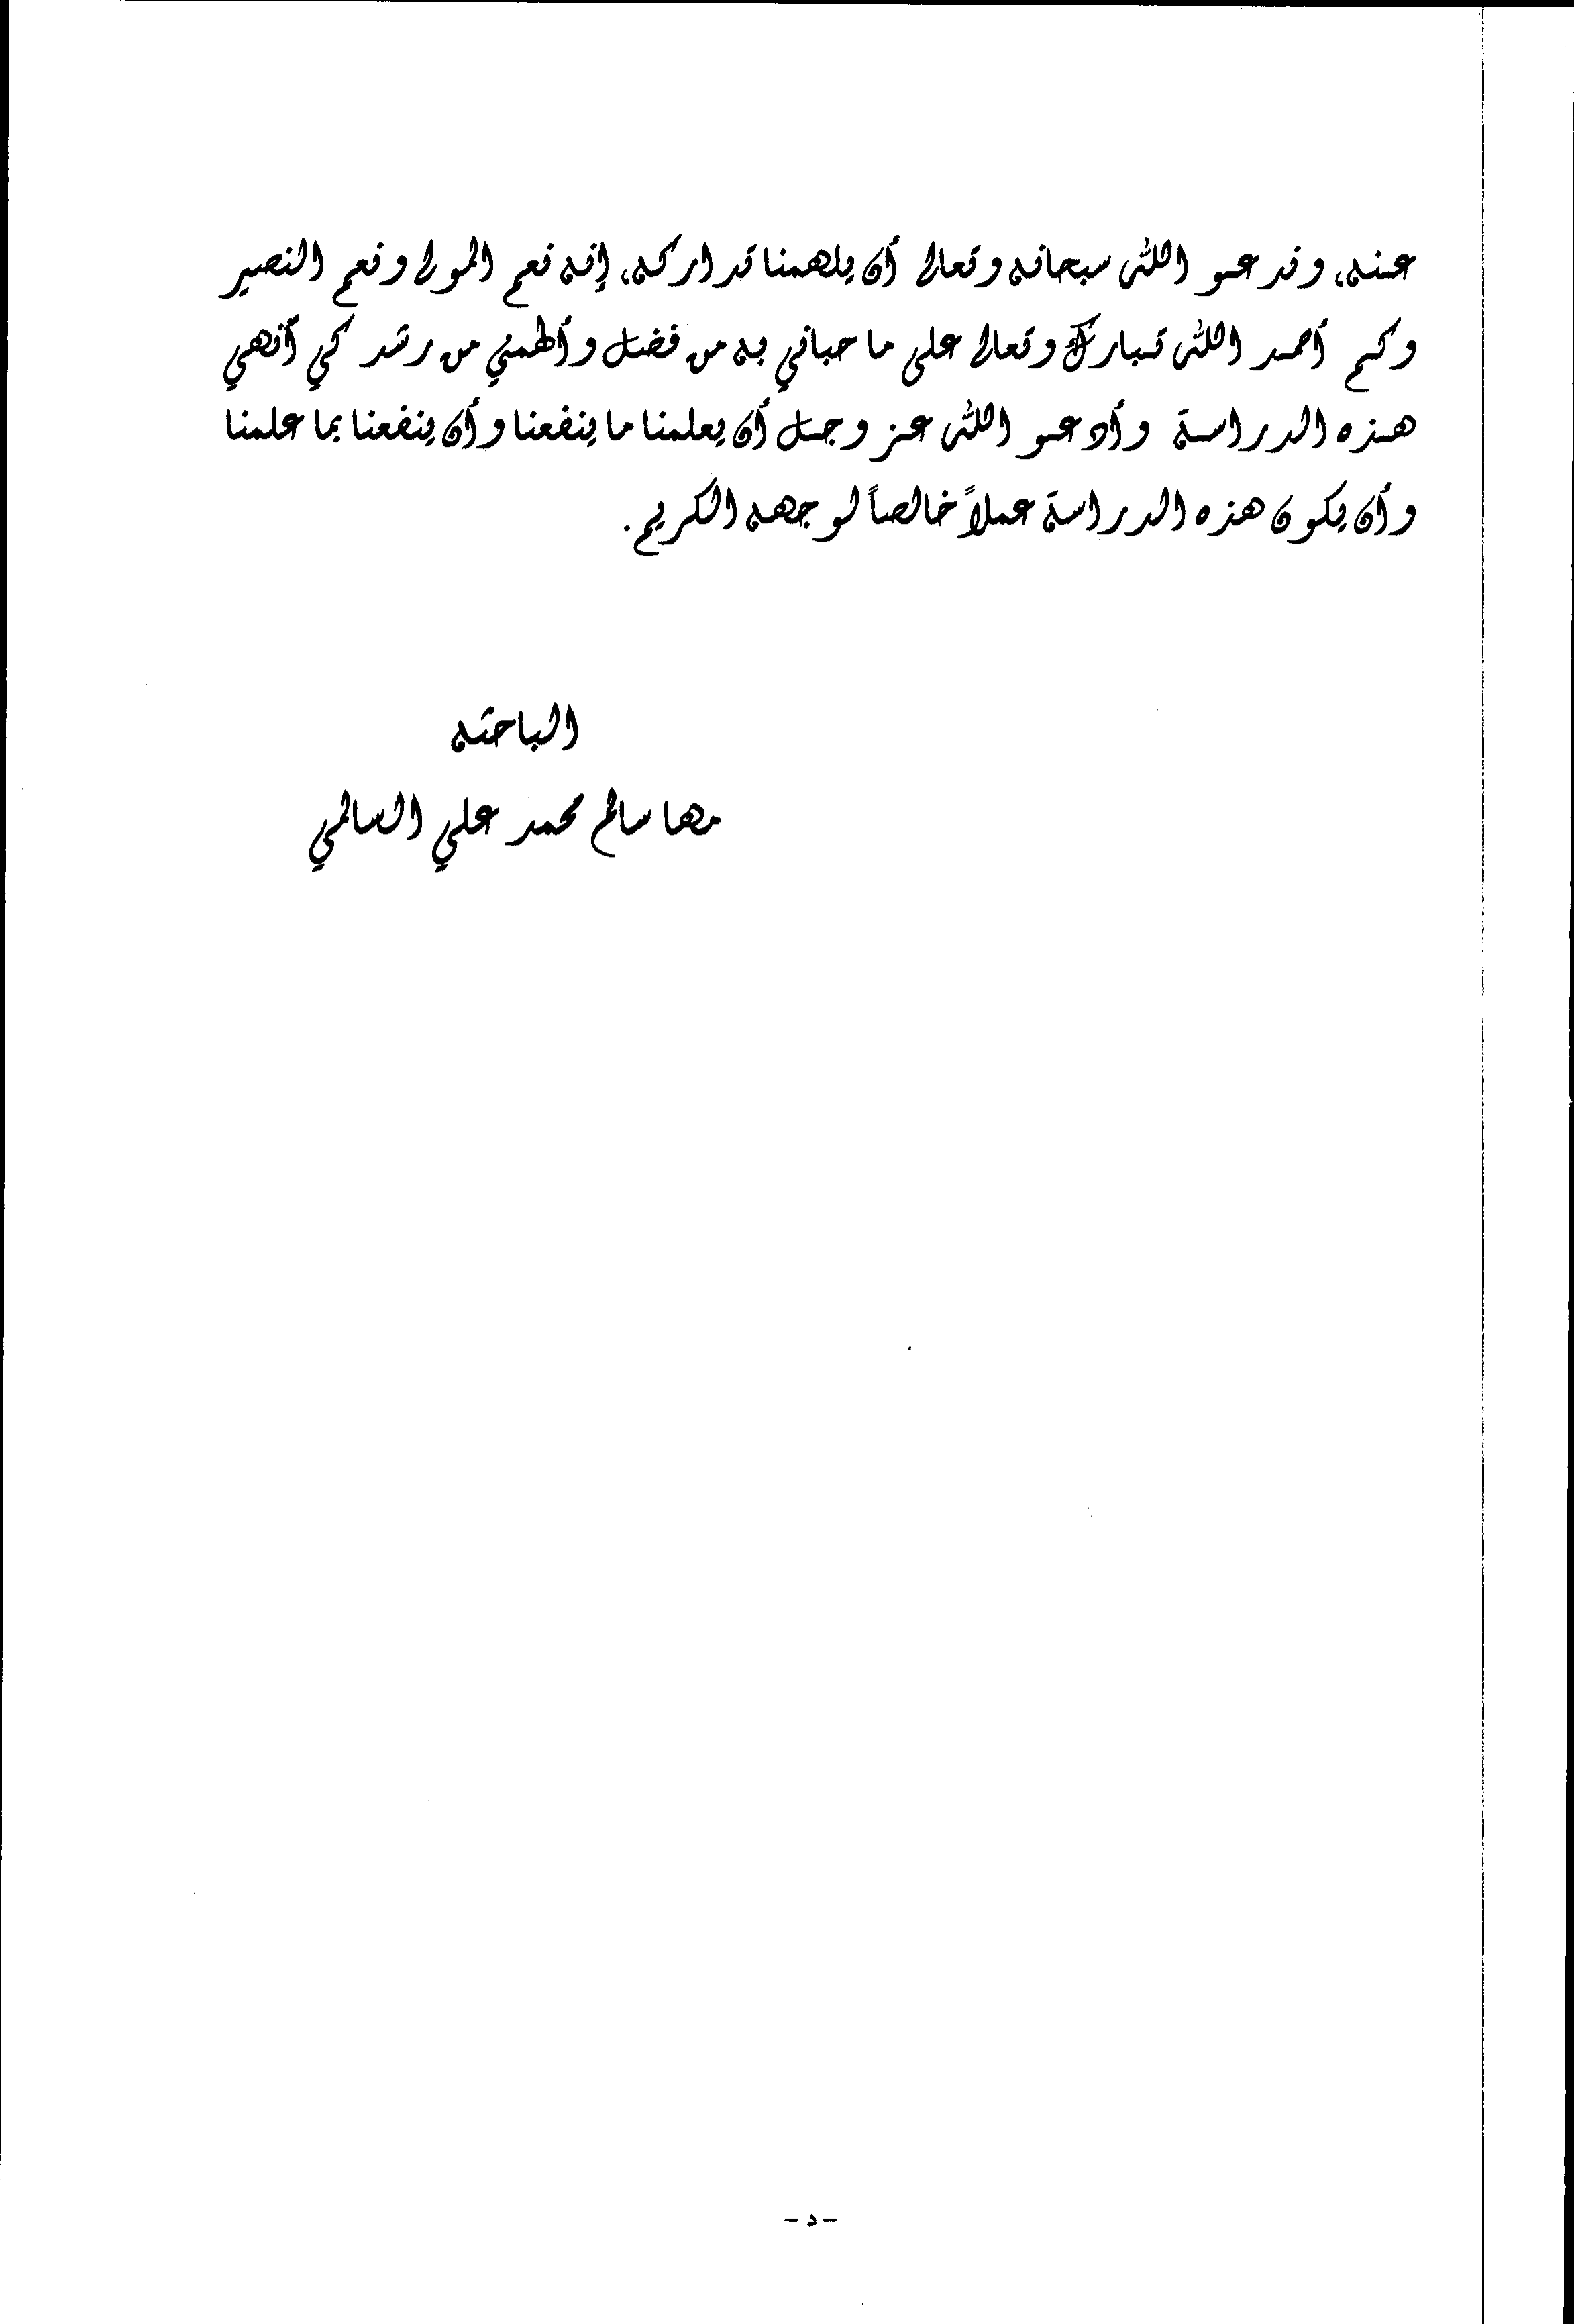 عنه، وندعو الله سبحانه وتعالى أن يلهمنا تداركه، إنه نعم المولى ونعم النصير
وكم أحمد الله تبارك وتعالى على ما حباني به من فضل وألهمني من رشد كي أنهي
هذه الدراسة وأدعو الله عز وجل أن يعلمنا ما ينفعنا وأن ينفعنا بما علمنا
وأن يكون هذه الدراسة عملاً خالصاً لوجهه الكريم.
الباحثه
مها سالم محمد علي السالمي
- د -